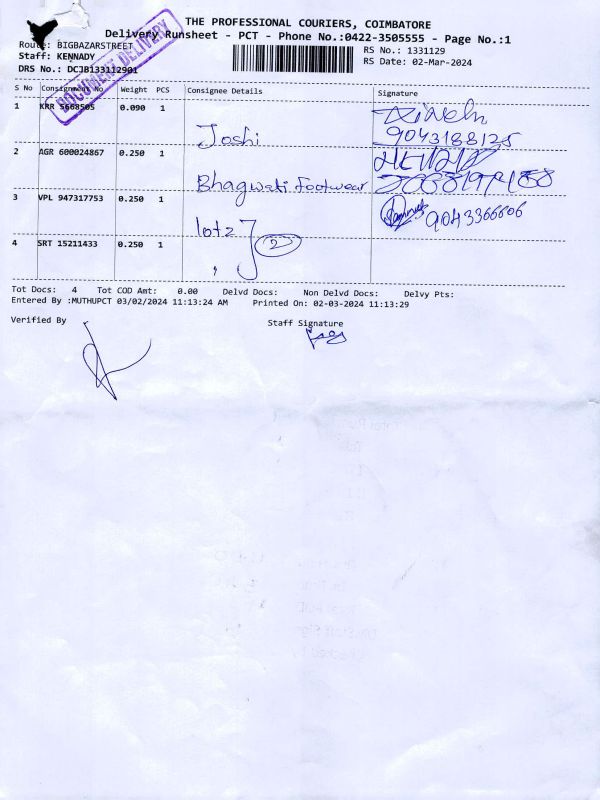 THE PROFESSIONAL COURIERS, COIMBATORE
Delivery Runsheet - PCT - Phone No.:0422-3505555 - Page No.:1
Route: BIGBAZARSTREET
RS No.: 1331129
Staff: KENNADY
RS Date: 02-Mar-2024
DRS No.: DCJB133112901
DOCUMENT DELIVERY
S No Consignment No Weight PCS Consignee Details Signature
1 KRR 5668505 0.090 1 Joshi
9043188125
2 AGR 600024867 0.250 1 Bhagwati Footwear
3 VPL 947317753 0.250 1 lotz 9043366606
4 SRT 15211433 0.250 1 2
Tot Docs: 4 Tot COD Amt: 0.00 Delvd Docs: Non Delvd Docs: Delvy Pts:
Entered By :MUTHUPCT 03/02/2024 11:13:24 AM Printed On: 02-03-2024 11:13:29
Verified By Staff Signature